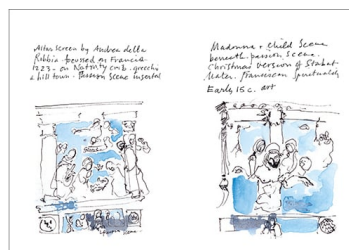 Altar screen by Andrea della
Robbia focussed on Francis
1223 - on Nativity crib. greccio
a hill town - Passion Scene inserted
Madonna + child Scene
beneath passion scene.
Christmas version of Stabat
Mater. franciscan spirituality
Early 15 c. art